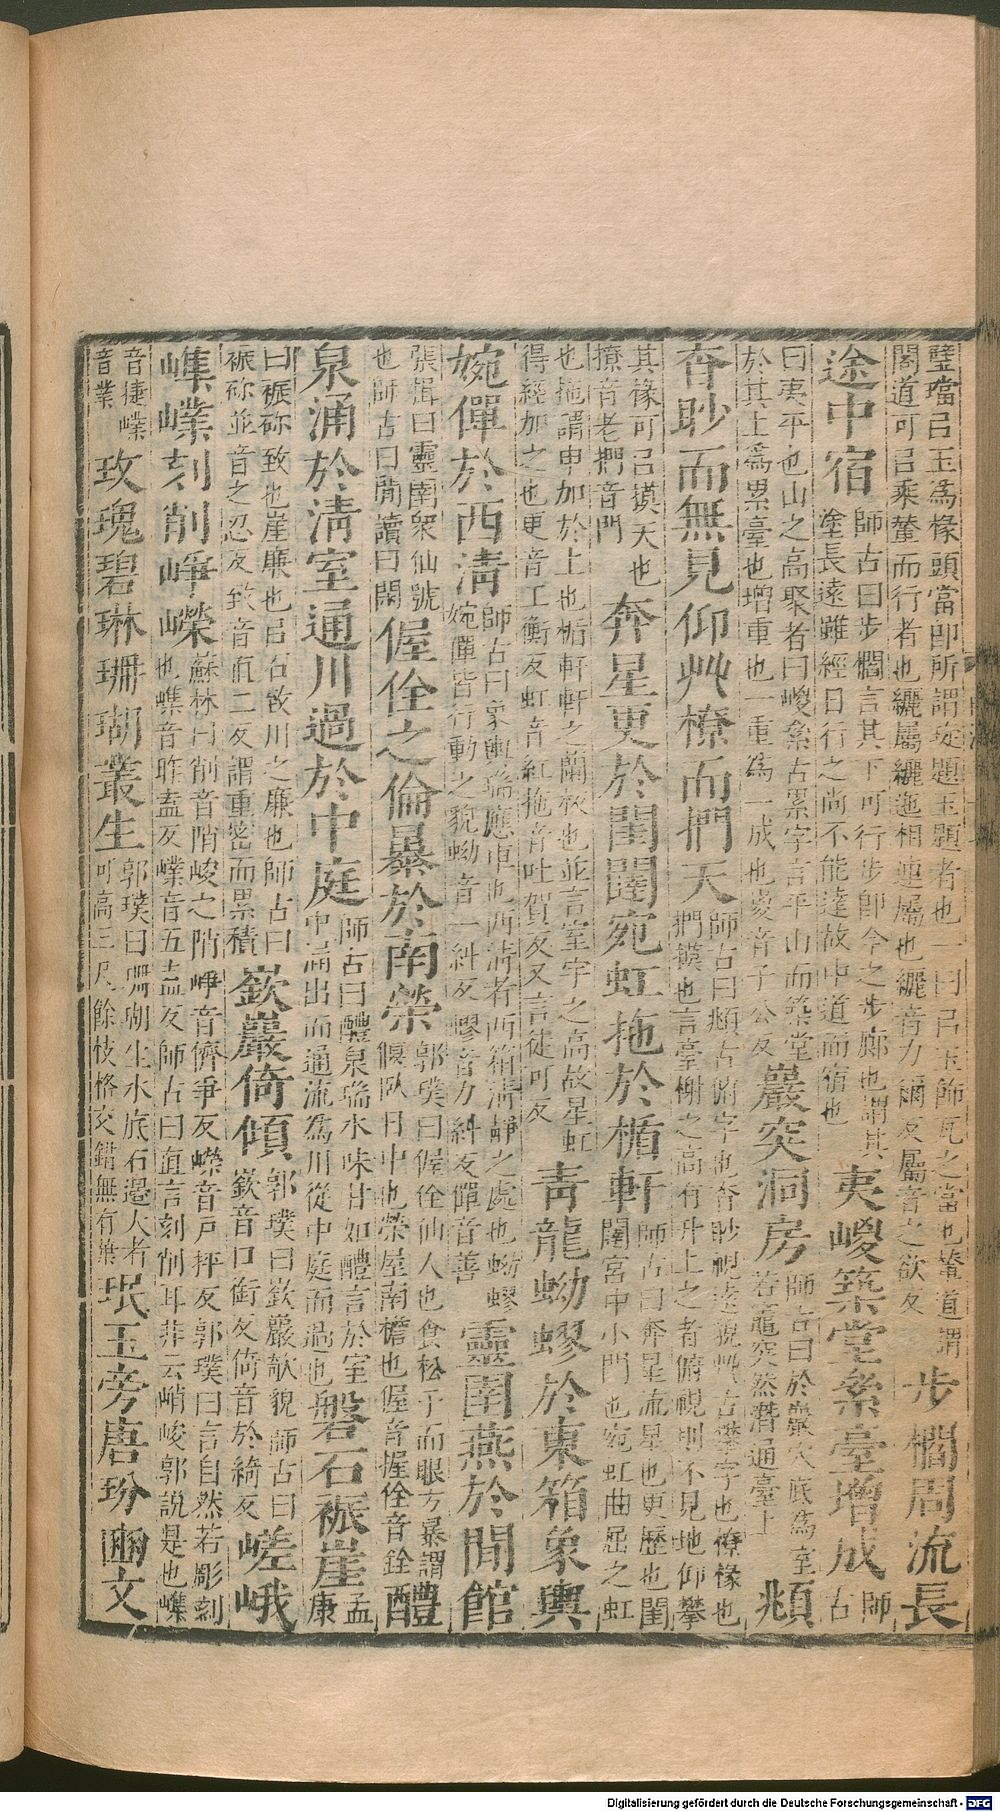 璧璫㠯玉為椽頭當即所謂琁題玉題者也一曰㠯玉飾瓦之當也輦道謂
閣道可㠯乘輦而行者也纚屬纚迤相連屬也纚音力爾反屬音之欲反
步櫩周流長
途中宿
師古曰步櫩言其下可行步即今之步廊也謂其
塗長遠雖經日行之尚不能達故中道而宿也
夷嵕築堂絫臺增成
師
古
曰夷平也山之高聚者曰嵕絫古累字言平山而築堂
於其上為累臺也增重也一重為一成也嵕音子公反
巖突洞房
師古曰於巖穴底為室
若竈突然潛通臺上
頫
杳眇而無見仰艸橑而捫天
師古曰頫古俯字也杳眇視遠貌艸古攀字也橑椽也
捫摸也言臺榭之高有升上之者俯視則不見地仰攀
其椽可㠯摸天也
撩音老捫音門
奔星更於閨闥宛虹拖於楯軒
師古曰奔星流星也更歷也閨
闥宮中小門也宛虹曲屈之虹
也拖謂申加於上也楯軒軒之闌板也並言室宇之高故星虹
得經加之也更音工衡反虹音紅拖音吐賀反又言徒可反
青龍蚴蟉於東箱象輿
婉僤於西清
師古曰象輿瑞應車也西清者西箱清靜之處也蚴蟉
婉僤皆行動之貌蚴音一糾反蟉音力糾反僤音善
靈圄燕於閒館
張揖曰靈圄衆仙號
也師古曰閒讀曰閑
偓佺之倫暴於南榮
郭璞曰偓佺仙人也食松子而眼方暴謂
偃臥日中也榮屋南檐也偓音握佺音銓
醴
泉涌於清室通川過於中庭
師古曰醴泉瑞水味甘如醴言於室
中涌出而通流為川從中庭而過也
磐石裖崖
孟
康
曰裖䃽致也崖廉也㠯石致川之廉也師古曰
裖䃽並音之忍反致音直二反謂重密而累積
嶔巖倚傾
郭璞曰嶔巖欹貌師古曰
嶔音口銜反倚音於綺反
嵯峨
嶕嶫刻削崢嶸
蘇林曰削音陗峻之陗崢音儕爭反嶸音戶抨反郭璞曰言自然若彫刻
也嶕音昨盍反嶫音五盍反師古曰直言刻削耳非云峭峻郭說是也嶕
音捷嶫
音業
玫瑰碧琳珊瑚叢生
郭璞曰珊瑚生水底石邊大者
可高三尺餘枝格交錯無有葉
珉玉旁唐玢豳文